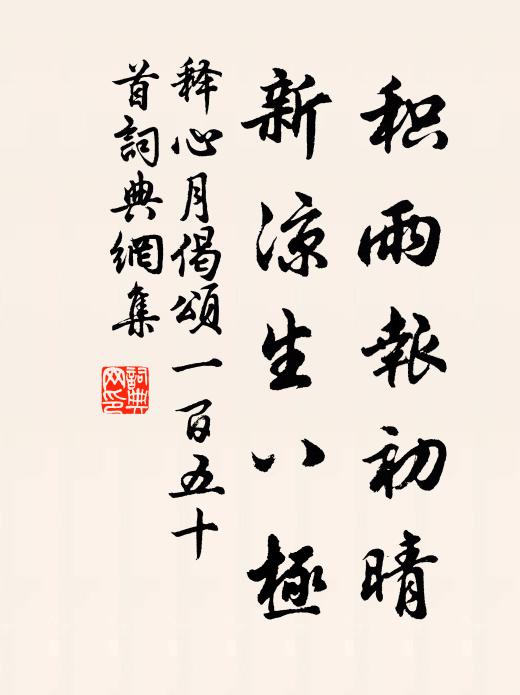 积雨報初晴
新凉生八極
释心月偈頌一百五十
首詞典網集
詞典
网印